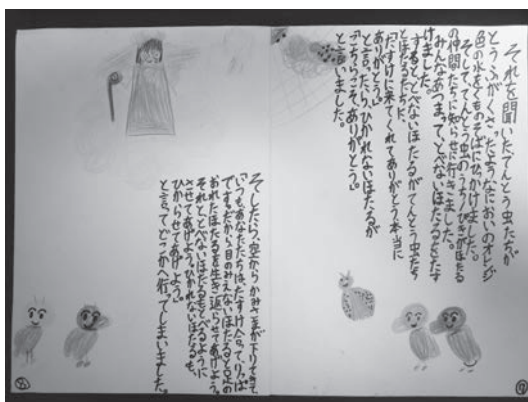 それを聞いたてんとう虫たちが
とうふがくさったようなにおいのオレンジ
色の水をくものそばにひっかけました。
そして、てんとう虫のうち1ぴきがほたる
の仲間たちに知らせに行きました。
みんなあつまって、とべないほたるをたす
けました。
するととべないほたるがてんとう虫たち
とほたるたちに、
「たすけに来てくれてありがとう本当に
ありがとう。」
と言ったら、ひかれないほたるが
「こちらこそありがとう。」
と言いました。
そしたら、空からかみさまが下りてきて、
「いつもあなたたちは、たすけ合って、りっぱ
ですね。だから目のみえないほたると足の
おれたほたるを生き返らせてあげよう。
それと、とべないほたるもとべるように
させてあげよう。ひかれないほたるも、
ひからせてあげよう。」
と言ってどこかへ行ってしまいました。